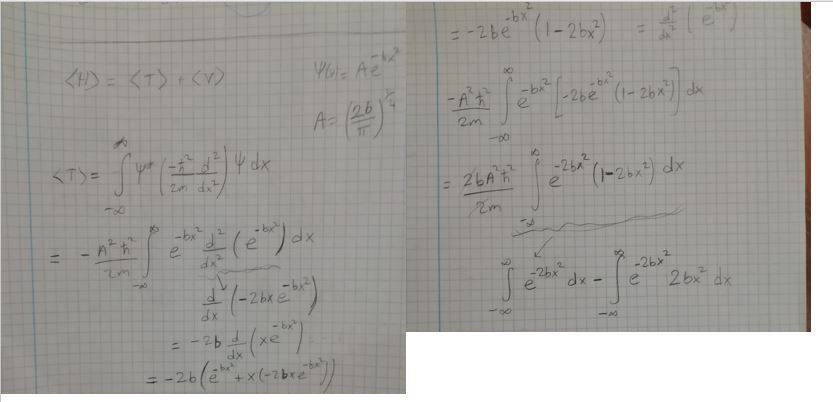 ⟨H⟩ = ⟨T⟩ + ⟨V⟩
ψ(x) = Ae^{-bx²}
A = (2b/π)^{1/4}
⟨T⟩ = ∫_{-∞}^{∞} ψ* (-ħ²/2m d²/dx²) ψ dx
= -A²ħ²/2m ∫_{-∞}^{∞} e^{-bx²} d²/dx² (e^{-bx²}) dx
d/dx (-2bxe^{-bx²})
= -2b d/dx (xe^{-bx²})
= -2b(e^{-bx²} + x(-2bxe^{-bx²}))
= -2be^{-bx²} (1-2bx²) = d²/dx² (e^{-bx²})
-A²ħ²/2m ∫_{-∞}^{∞} e^{-bx²} [-2be^{-bx²} (1-2bx²)] dx
= 2bA²ħ²/2m ∫_{-∞}^{∞} e^{-2bx²} (1-2bx²) dx
∫_{-∞}^{∞} e^{-2bx²} dx - ∫_{-∞}^{∞} e^{-2bx²} 2bx² dx